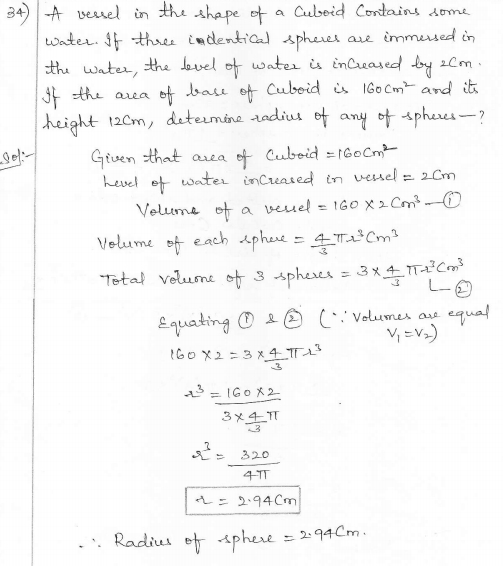 34) A vessel in the shape of a Cuboid Contains some
water. If three indentical spheres are immersed in
the water, the level of water is increased by 2Cm.
If the area of base of Cuboid is 160Cm² and its
height 12Cm, determine radius of any of spheres—?
Sol:- Given that area of Cuboid = 160Cm²
Level of water increased in vessel = 2Cm
Volume of a vessel = 160 × 2Cm³ — ①
Volume of each sphere = 4/3 πr³Cm³
Total volume of 3 spheres = 3 × 4/3 πr³Cm³
— ②
Equating ① & ② (∵ Volumes are equal
V₁ = V₂)
160 × 2 = 3 × 4/3 πr³
r³ = 160 × 2 / 3 × 4/3 π
r³ = 320 / 4π
r = 2.94Cm
∴ Radius of sphere = 2.94Cm.